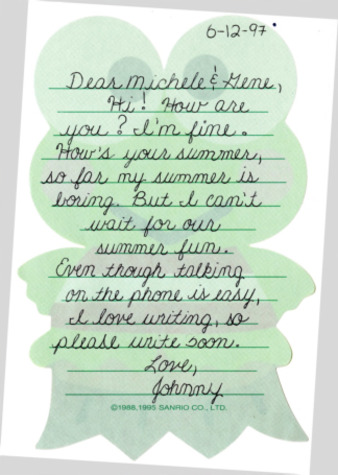 6-12-97
Dear Michele & Gene,
Hi! How are
you? I'm fine.
How's your summer,
so far my summer is
boring. But I can't
wait for our
summer fun.
Even though talking
on the phone is easy,
I love writing, so
please write soon.
Love,
Johnny
©1988,1995 SANRIO CO., LTD.